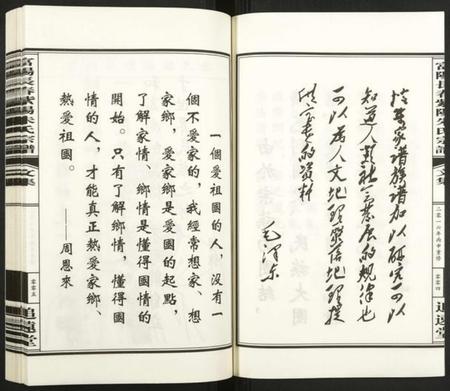 富陽長春紫陽朱氏宗譜
文集
二零一六年丙申重修
零零四
追遠堂
搜集家譜族譜加以研究可以
知道人類社會發展的規律也
可以為人文地理聚落地理提
供寶貴的資料
毛澤東
一個愛祖國的人,沒有一
個不愛家的,我經常想家、想
家鄉,愛家鄉是愛國的起點,
了解家情、鄉情是懂得國情的
開始。只有了解鄉情,懂得國
情的人,才能真正熱愛家鄉、
熱愛祖國。
——周恩來
富陽長春紫陽朱氏宗譜
文集
零零五
追遠堂